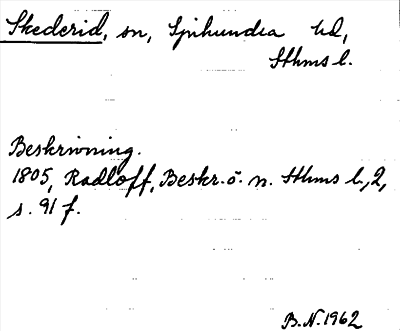 Skederid, sn, Sjuhundra hd,
Sthms l.
Beskrivning.
1805, Radloff, Beskr. ö. n. Sthms l., 2,
s. 91 f.
B.N. 1962